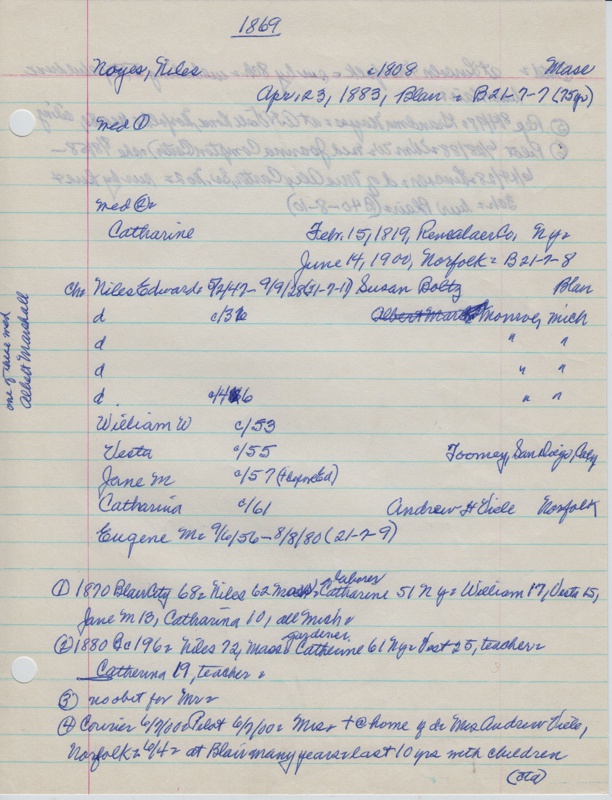 1869
Noyes, Niles c1808 Mass
Apr. 23, 1883, Blair = B21-7-7 (75yr)
med ①
med ②=
Catharine Febr. 15, 1819, Rensalaer Co, Ny=
June 14, 1900, Norfolk = B21-7-8
ch= Niles Edward= 5/2/47- 9/9/28 (31-7-17) Susan Boltz Blair
d c/36 Monroe, mich
d " "
d " "
d. c/46 " "
one of these med
Albert Marshall
William W c/53
Vesta c/55 Toomey, San Diego, Caty
Jane M c/57 (
Catharina c/61 Andrew H Viele Norfolk
Eugene M= 9/6/56-8/8/80 (21-7-9)
① 1870 Blair City 68= Niles 62 Mass, laborer = Catharine 51 Ny= William 17, Vesta 15,
Jane M 13, Catharina 10, all Mich=
② 1880 Bc 196= Niles 72, Mass gardener Catherine 61 Ny= Vest 25, teacher=
Catherina 19, teacher =
③ no obit for Mr=
④ Courier 6/7/00= Pilot 6/7/00= Mrs + @ home of d= Mrs Andrew Viele,
Norfolk = 6/4= at Blair many years= last 10 yrs with children